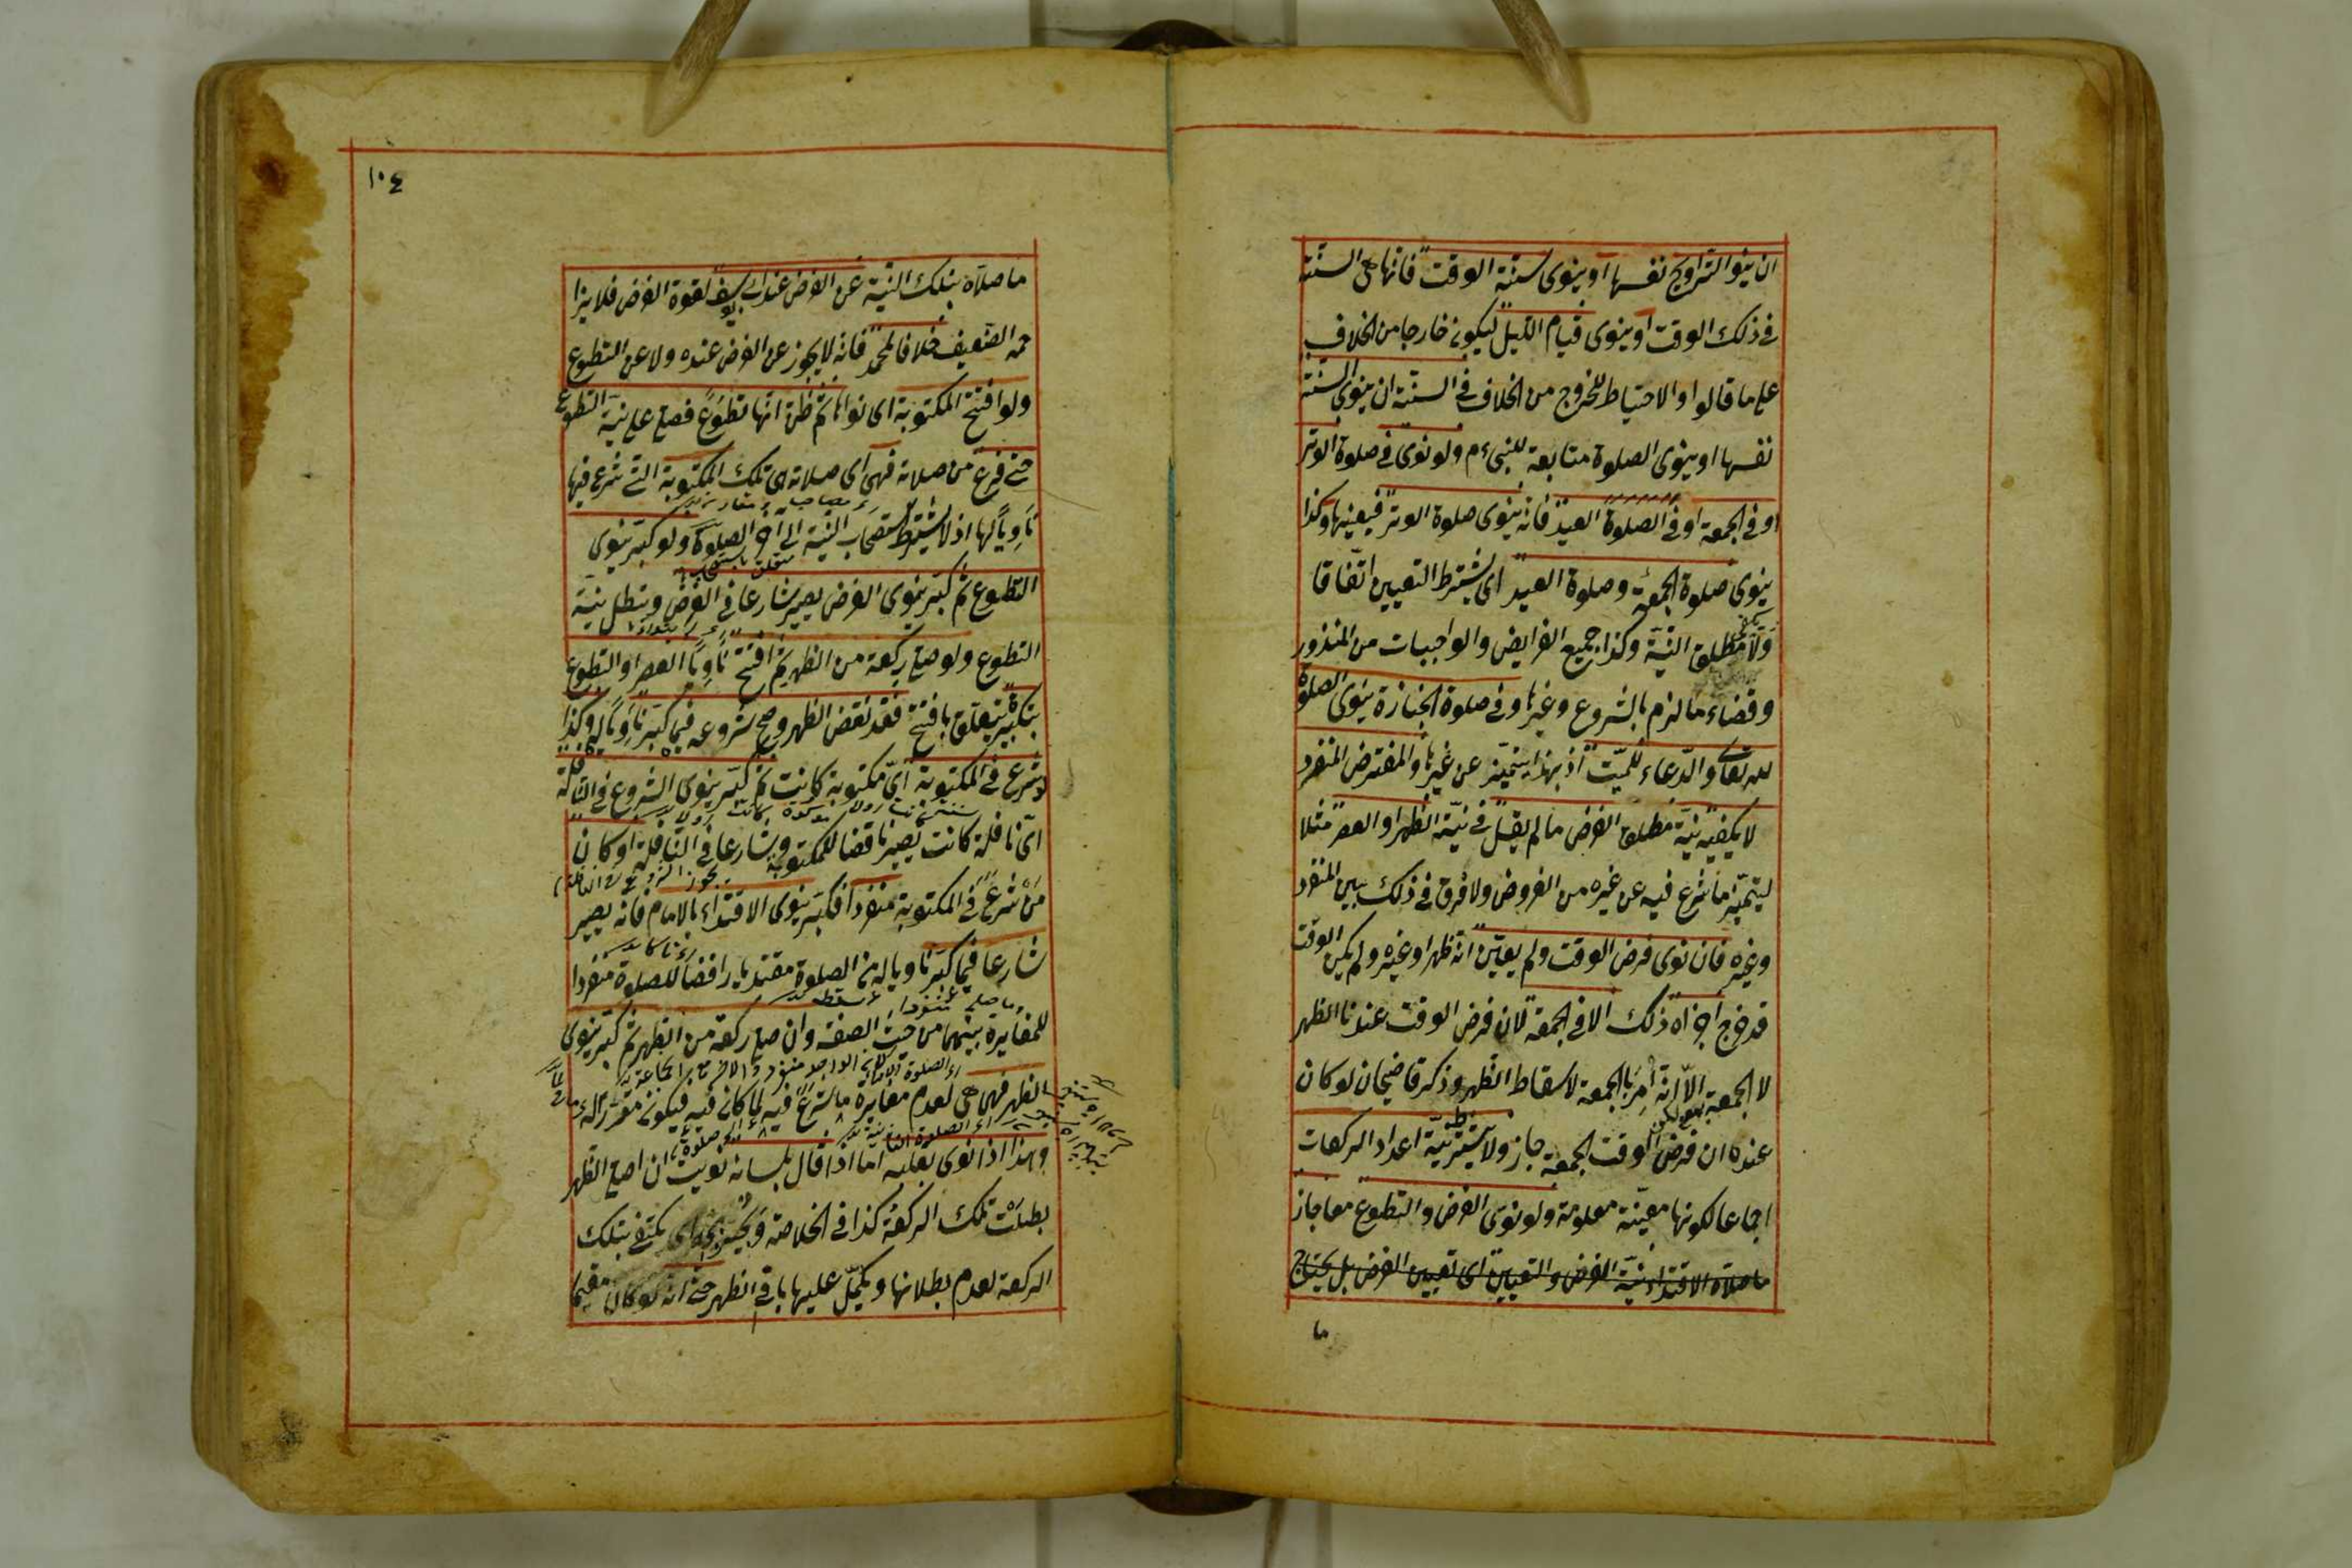 ان ينوا التراويح نفسها او ينوى سنة الوقت فانها هى السنة
فى ذلك الوقت او ينوى قيام الليل ليكون خارجا من الخلاف
على ما قالوا والاحتياط للخروج من الخلاف فى السنة ان ينوى السنة
نفسها او ينوى الصلوة متابعة للنبىءم ولو نوى فى صلوة الوتر
او فى الجمعة او فى الصلوة العيد فانه ينوى صلوة الوتر فيعينها وكذا
ينوى صلوة الجمعة وصلوة العيد اى يشترط التعيين اتفاقا
ولا يكفى مطلق النية وكذا جميع الفرايض والواجبات من المنذور
وقضاء ما لزم بالشروع وغيرها وفى صلوة الجنازة ينوى الصلوة
لله تعالى والدعاء للميت اذ بهذا يتميز عن غيرها والمفترض المنفرد
لا يكفيه نية مطلق الفرض ما لم يقل فى نية الظهر او العصر مثلا
ليتميز ما شرع فيه عن غيره من الفروض ولا فرق فى ذلك بين المنفرد
وغيره فان نوى فرض الوقت ولم يعين انه ظهر او غيره ولم يكن الوقت
قد خرج اجزاه ذلك الا فى الجمعة لان فرض الوقت عندنا الظهر
لا الجمعة الا انه امر بالجمعة لاسقاط الظهر وذكر قاضيخان لو كان
عنده ان فرض الوقت الجمعة جاز ولا يشترط نية اعداد الركعات
اجماعا لكونها معينة معلومة ولو نوى الفرض والتطوع معا جاز
ما صلاه الاقتداء نية الفرض والتعيين اى تعيين الفرض بل يحتاج
ما
١٠٤
ما صلاه بتلك النية عن الفرض عند ابى يوسف لقوة الفرض فلا يزا
حمه الضعيف خلافا لمحمد فانه لا يجوز عن الفرض عنده ولا عن التطوع
ولو افتتح المكتوبة اى نواها ثم ظن انها تطوع فصلى على نية التطوع
حتى فرغ من صلاته فهى اى صلاته هى تلك المكتوبة التى شرع فيها
ناويا لها اذ لا يشترط استصحاب النية الى آخر الصلوة ولو كبر ينوى
التطوع ثم كبر ينوى الفرض يصير شارعا فى الفرض وتبطل نية
التطوع ولو صلى ركعة من الظهر ثم افتتح ناويا العصر او التطوع
بتكبير يتعلق بافتتح فقد نقض الظهر وصح شروعه فيما كبر ناويا له وكذا
لو شرع فى المكتوبة اى مكتوبة كانت ثم كبر ينوى الشروع فى النافلة
اى نافلة كانت يصير ناقضا للمكتوبة وشارعا فى النافلة او كان
من شرع فى المكتوبة منفردا فكبر ينوى الاقتداء بالامام فانه يصير
شارعا فيما كبر ناويا له من الصلوة مقتديا رافضا للصلوة منفردا
للمغايرة بينهما من حيث الصفة وان صلى ركعة من الظهر ثم كبر ينوى
الظهر فهى هى لعدم مغايرة ما شرع فيه لما كان فيه فيكون مقررا له
وهذا اذا نوى بقلبه اما اذا قال بلسانه نويت ان اصلى الظهر
بطلت تلك الركعة كذا فى الخلاصة ويجتزئ بها اى يكتفى بتلك
الركعة لعدم بطلانها ويكمل عليها باقى الظهر حتى انه لو كان مقيما